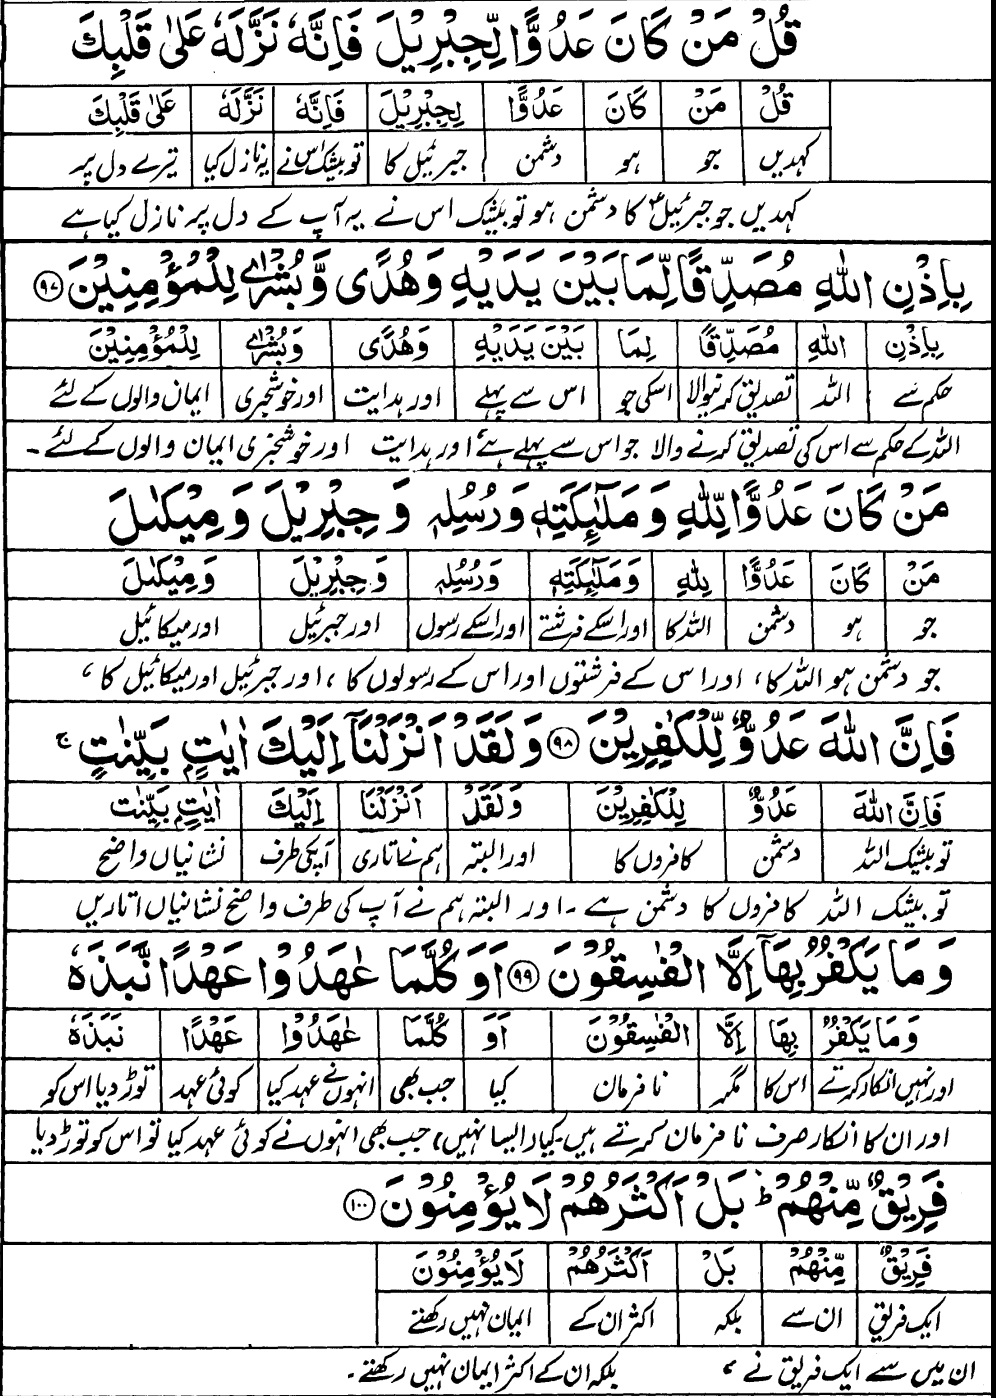 قُلْ مَنْ كَانَ عَدُوًّا لِّجِبْرِيْلَ فَاِنَّهٗ نَزَّلَهٗ عَلٰى قَلْبِكَ
قُلْ مَنْ كَانَ عَدُوًّا لِجِبْرِيْلَ فَاِنَّهٗ نَزَّلَهٗ عَلٰى قَلْبِكَ
کہدیں جو ہو دشمن جبرئیل کا تو بیشک اس نے یہ نازل کیا تیرے دل پر
کہدیں جو جبرئیلؑ کا دشمن ہو تو بیشک اس نے یہ آپ کے دل پر نازل کیا ہے
بِاِذْنِ اللّٰهِ مُصَدِّقًا لِّمَا بَيْنَ يَدَيْهِ وَهُدًى وَّبُشْرٰى لِلْمُؤْمِنِيْنَ ۹۷
بِاِذْنِ اللّٰهِ مُصَدِّقًا لِمَا بَيْنَ يَدَيْهِ وَهُدًى وَبُشْرٰى لِلْمُؤْمِنِيْنَ
حکم سے اللہ تصدیق کرنیوالا اسکی جو اس سے پہلے اور ہدایت اور خوشخبری ایمان والوں کے لئے
اللہ کے حکم سے اس کی تصدیق کرنے والا جو اس سے پہلے ہے اور ہدایت اور خوشخبری ایمان والوں کے لئے۔
مَنْ كَانَ عَدُوًّا لِّلّٰهِ وَمَلٰٓئِكَتِهٖ وَرُسُلِهٖ وَجِبْرِيْلَ وَمِيْكٰىلَ
مَنْ كَانَ عَدُوًّا لِلّٰهِ وَمَلٰٓئِكَتِهٖ وَرُسُلِهٖ وَجِبْرِيْلَ وَمِيْكٰىلَ
جو ہو دشمن اللہ کا اور اسکے فرشتے اور اسکے رسول اور جبرئیل اور میکائیل
جو دشمن ہو اللہ کا، اور اس کے فرشتوں اور اس کے رسولوں کا، اور جبرئیل اور میکائیل کا،
فَاِنَّ اللّٰهَ عَدُوٌّ لِّلْكٰفِرِيْنَ ۹۸ وَلَقَدْ اَنْزَلْنَآ اِلَيْكَ اٰيٰتٍۭ بَيِّنٰتٍ ج
فَاِنَّ اللّٰهَ عَدُوٌّ لِلْكٰفِرِيْنَ وَلَقَدْ اَنْزَلْنَا اِلَيْكَ اٰيٰتٍۭ بَيِّنٰتٍ
تو بیشک اللہ دشمن کافروں کا اور البتہ ہم نے اتاری آپکی طرف نشانیاں واضح
تو بیشک اللہ کافروں کا دشمن ہے۔ اور البتہ ہم نے آپ کی طرف واضح نشانیاں اتاریں
وَمَا يَكْفُرُ بِهَآ اِلَّا الْفٰسِقُوْنَ ۹۹ اَوَ كُلَّمَا عٰهَدُوْا عَهْدًا نَّبَذَهٗ
وَمَا يَكْفُرُ بِهَا اِلَّا الْفٰسِقُوْنَ اَوَ كُلَّمَا عٰهَدُوْا عَهْدًا نَبَذَهٗ
اور نہیں انکار کرتے اس کا مگر نافرمان کیا جب بھی انہوں نے عہد کیا کوئی عہد توڑ دیا اس کو
اور ان کا انکار صرف نافرمان کرتے ہیں۔ کیا (ایسا نہیں) جب بھی انہوں نے کوئی عہد کیا تو اس کو توڑ دیا
فَرِيْقٌ مِّنْهُمْ ط بَلْ اَكْثَرُهُمْ لَا يُؤْمِنُوْنَ ۱۰۰
فَرِيْقٌ مِّنْهُمْ بَلْ اَكْثَرُهُمْ لَا يُؤْمِنُوْنَ
ایک فریق ان سے بلکہ اکثر ان کے ایمان نہیں رکھتے
ان میں سے ایک فریق نے، بلکہ ان کے اکثر ایمان نہیں رکھتے۔